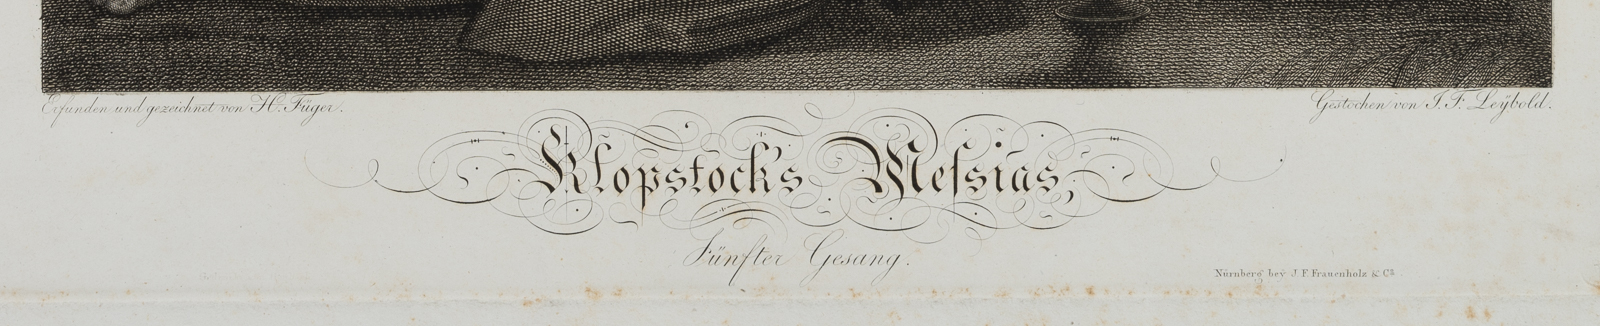 Erfunden und gezeichnet von H. Füger.
Gestochen von J. F. Leÿbold.
Klopstock's Meſsias,
Fünfter Gesang.
Nürnberg beÿ J F Frauenholz & Co